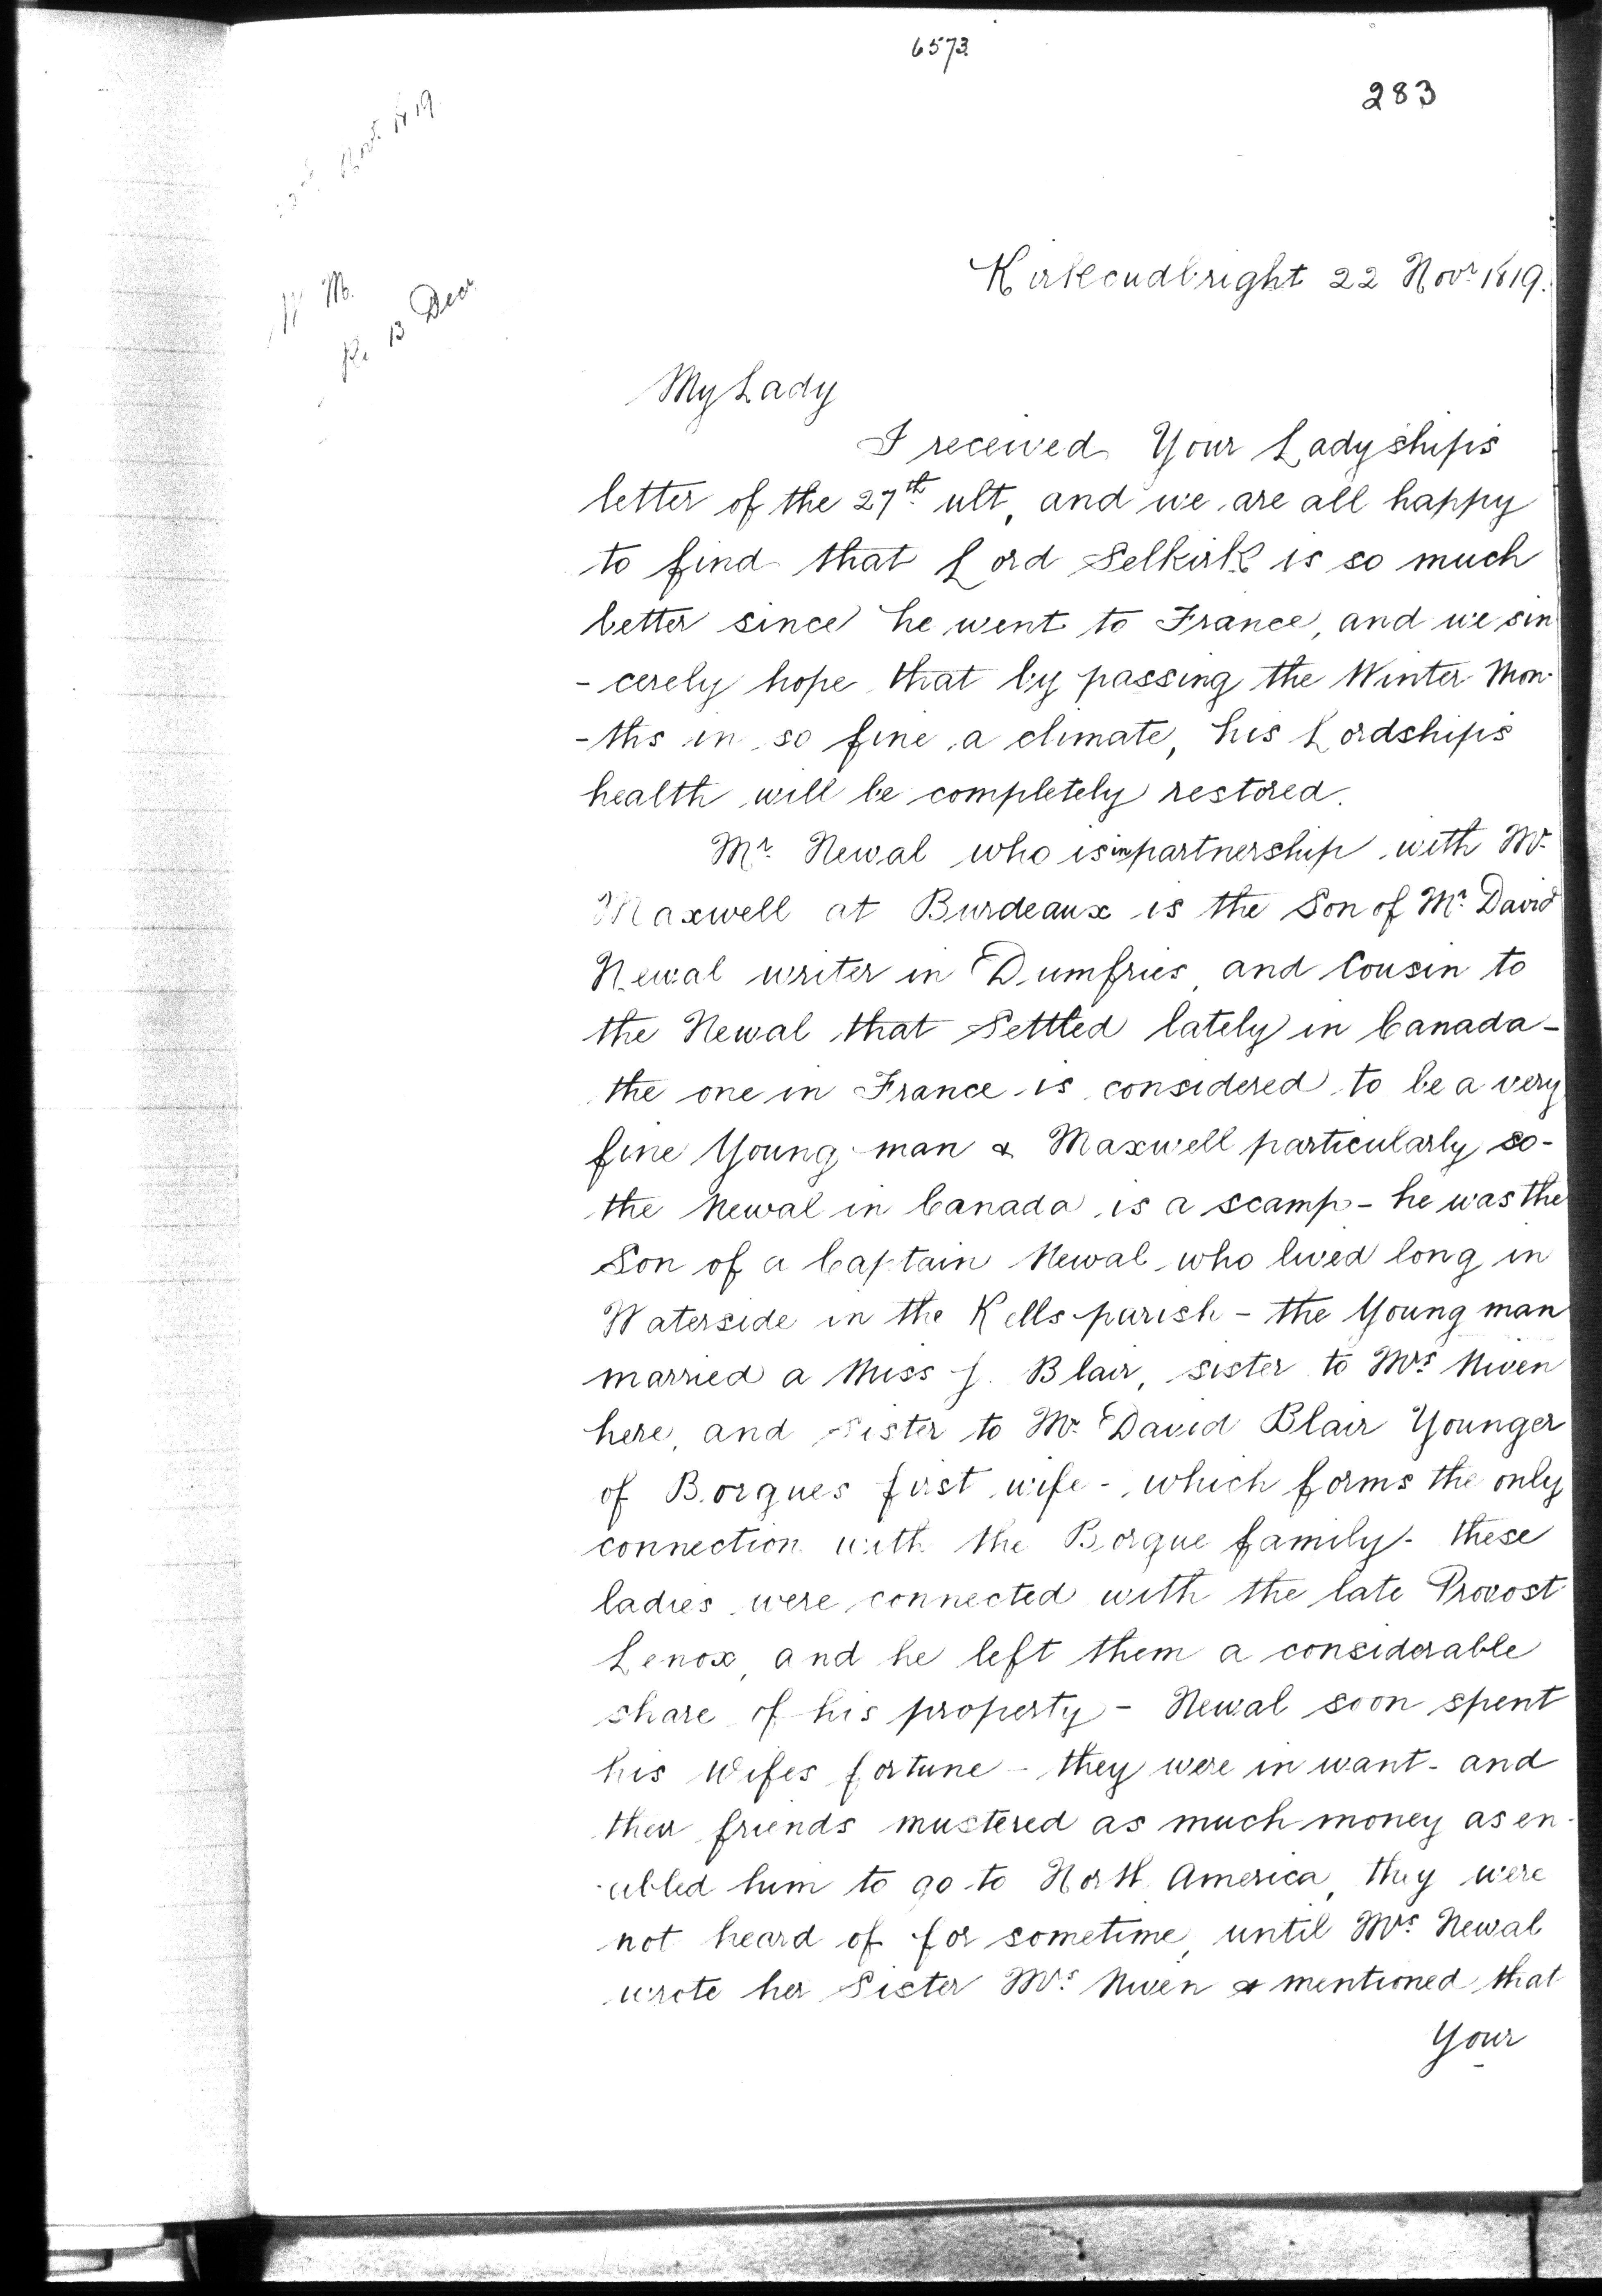 6573
283
Novr 1819
W M.
Re 13 Decr
Kirkcudbright 22 Novr 1819.
My Lady
I received Your Ladyships
letter of the 27th ult, and we are all happy
to find that Lord Selkirk is so much
better since he went to France, and we sin
-cerely hope that by passing the Winter Mon-
-ths in so fine a climate, his Lordships
health will be completely restored.
Mr. Newal who is in partnership with Mr.
Maxwell at Burdeaux is the Son of Mr. David
Newal writer in Dumfries, and Cousin to
the Newal that Settled lately in Canada -
the one in France is considered to be a very
fine Young man & Maxwell particularly so -
the Newal in Canada is a scamp - he was the
Son of a Captain Newal who lived long in
Waterside in the Kells parish - the Young man
married a Miss J. Blair, sister to Mrs Niven
here, and Sister to Mr. David Blair Younger
of Borgues first wife - which forms the only
connection with the Borgue family - these
ladies were connected with the late Provost
Lenox, and he left them a considerable
share of his property - Newal soon spent
his Wifes fortune - they were in want - and
their friends mustered as much money as en-
-abled him to go to North America, they were
not heard of for sometime, until Mrs Newal
wrote her Sister Mrs. Niven & mentioned that
Your